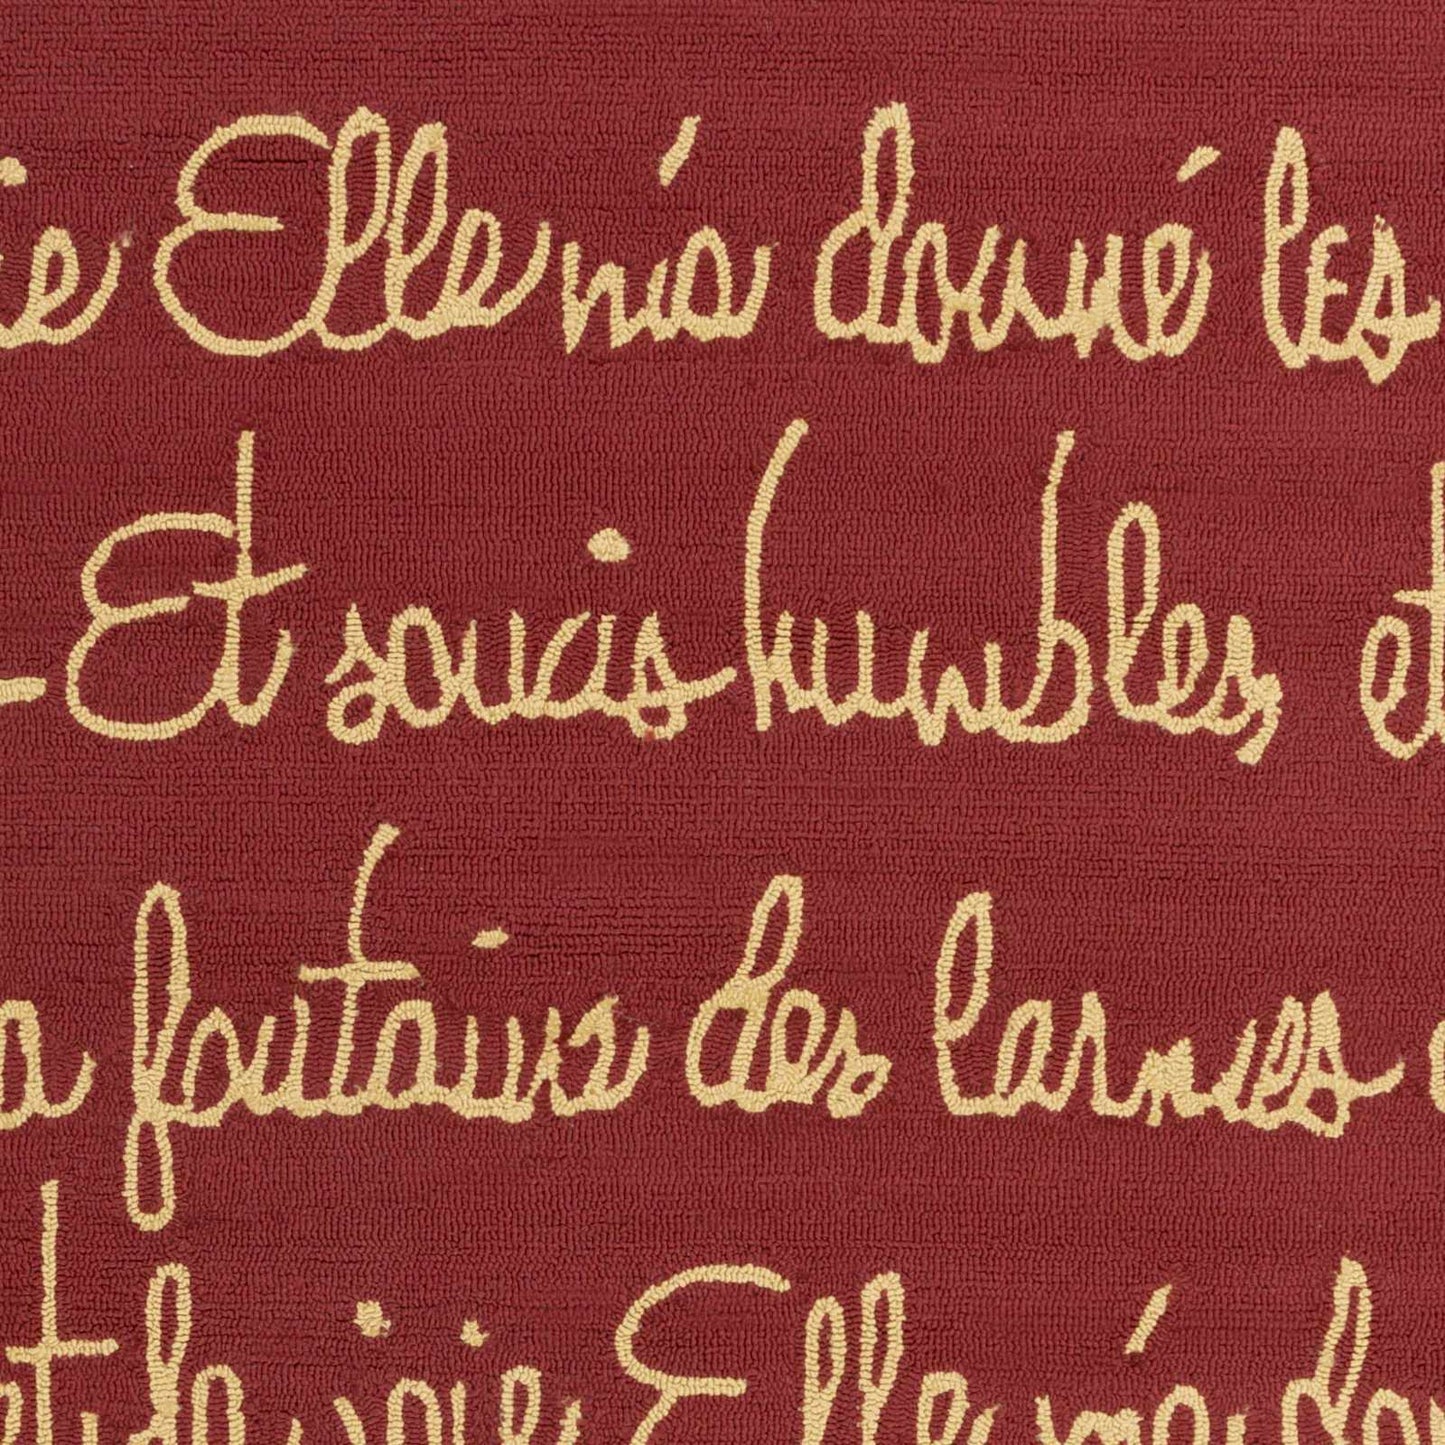 ie Elle m'a donné les
- Et soucis humbles, et
a fontaine des larmes
et de joie Elle m'a don